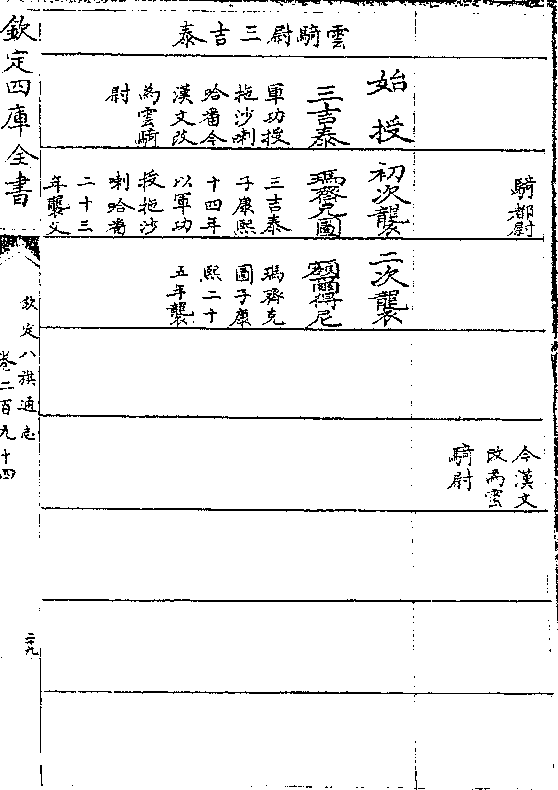 騎都尉
今漢文
改為雲
騎尉
雲騎尉三吉泰
始授
三吉泰
軍功授
拖沙喇
哈番今
漢文改
為雲騎
尉
初次襲
瑪齊克圖
三吉泰
子康熙
十四年
以軍功
授拖沙
喇哈番
二十三
年襲父
二次襲
額爾得尼
瑪齊克
圖子康
熙二十
五年襲
欽定四庫全書
欽定八旗通志
卷二百九十四
二十九